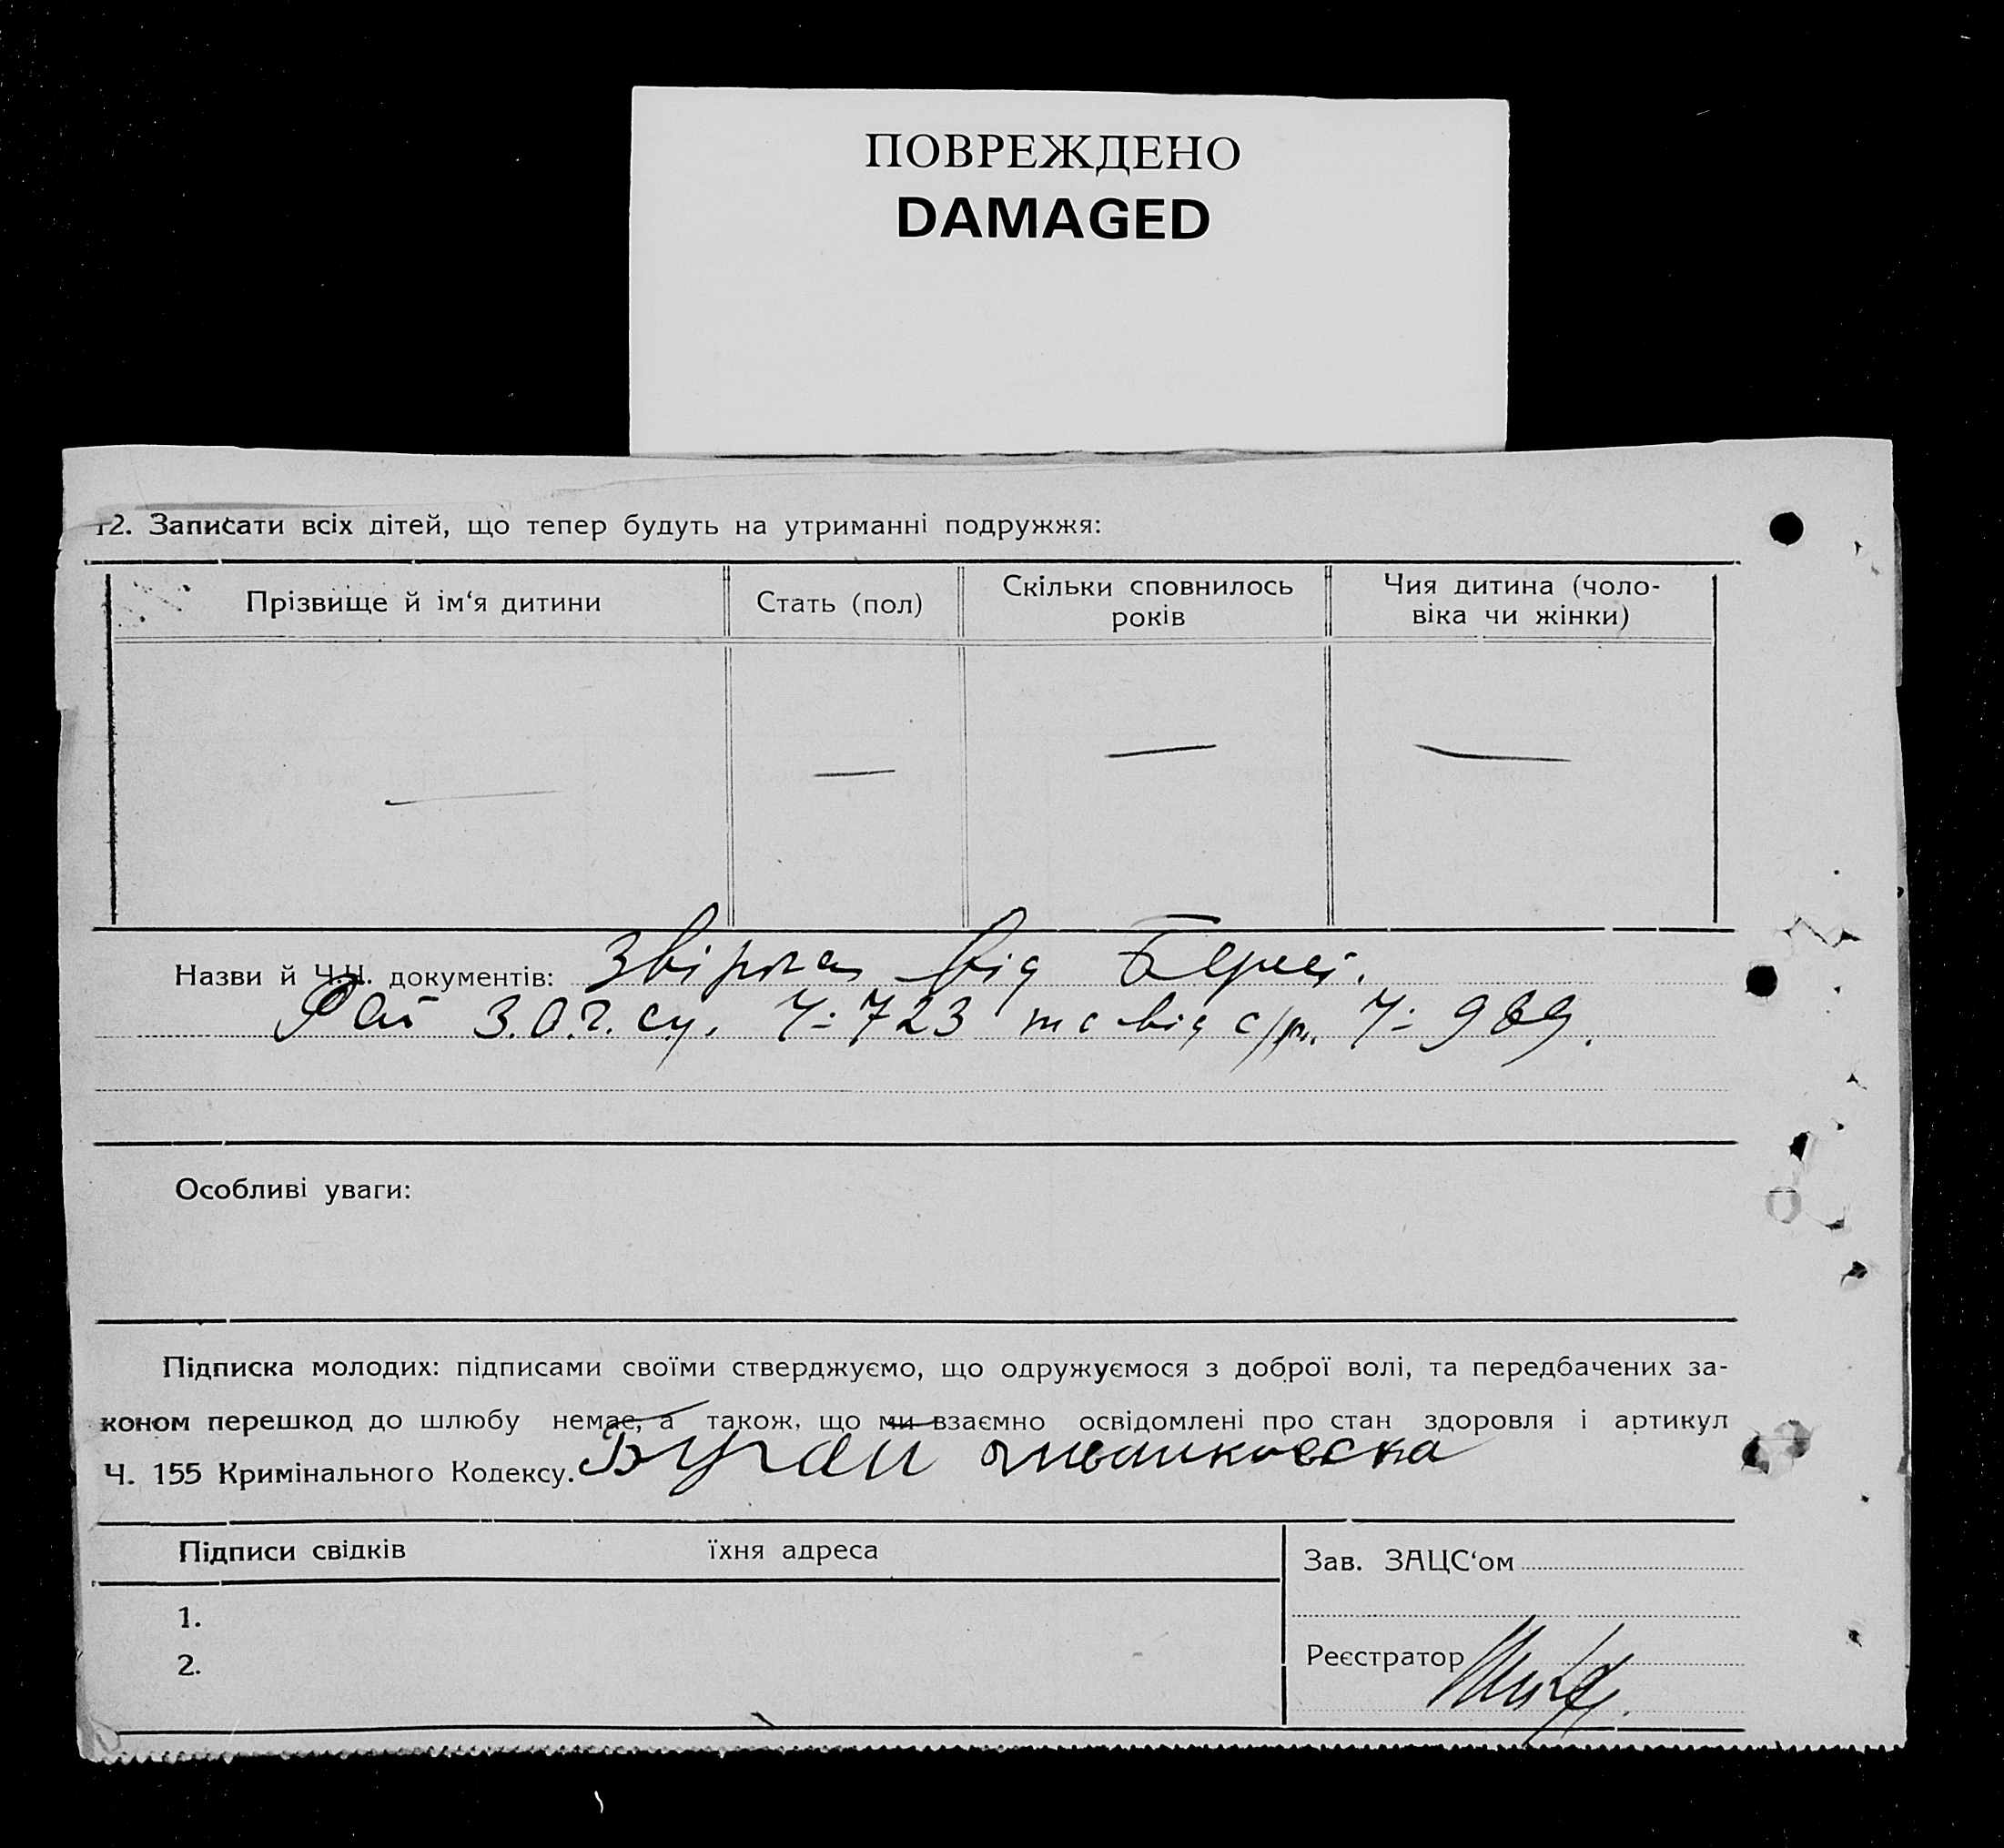 ПОВРЕЖДЕНО
DAMAGED
12. Записати всіх дітей, що тепер будуть на утриманні подружжя:
Прізвище й ім‘я дитини
Стать (пол)
Скільки сповнилось
років
Чия дитина (чоло-
віка чи жінки)
— — — —
Назви й Ч.Ч. документів: від
З.О.Г. Ч: 723 та від с/р. Ч: 989.
Особливі уваги:
Підписка молодих: підписами своїми стверджуємо, що одружуємося з доброї волі, та передбачених за-
коном перешкод до шлюбу немає, а також, що ми взаємно освідомлені про стан здоровля і артикул
Ч. 155 Кримінального Кодексу.
Підписи свідків їхня адреса
Зав. ЗАЦС‘ом
1.
2.
Реєстратор